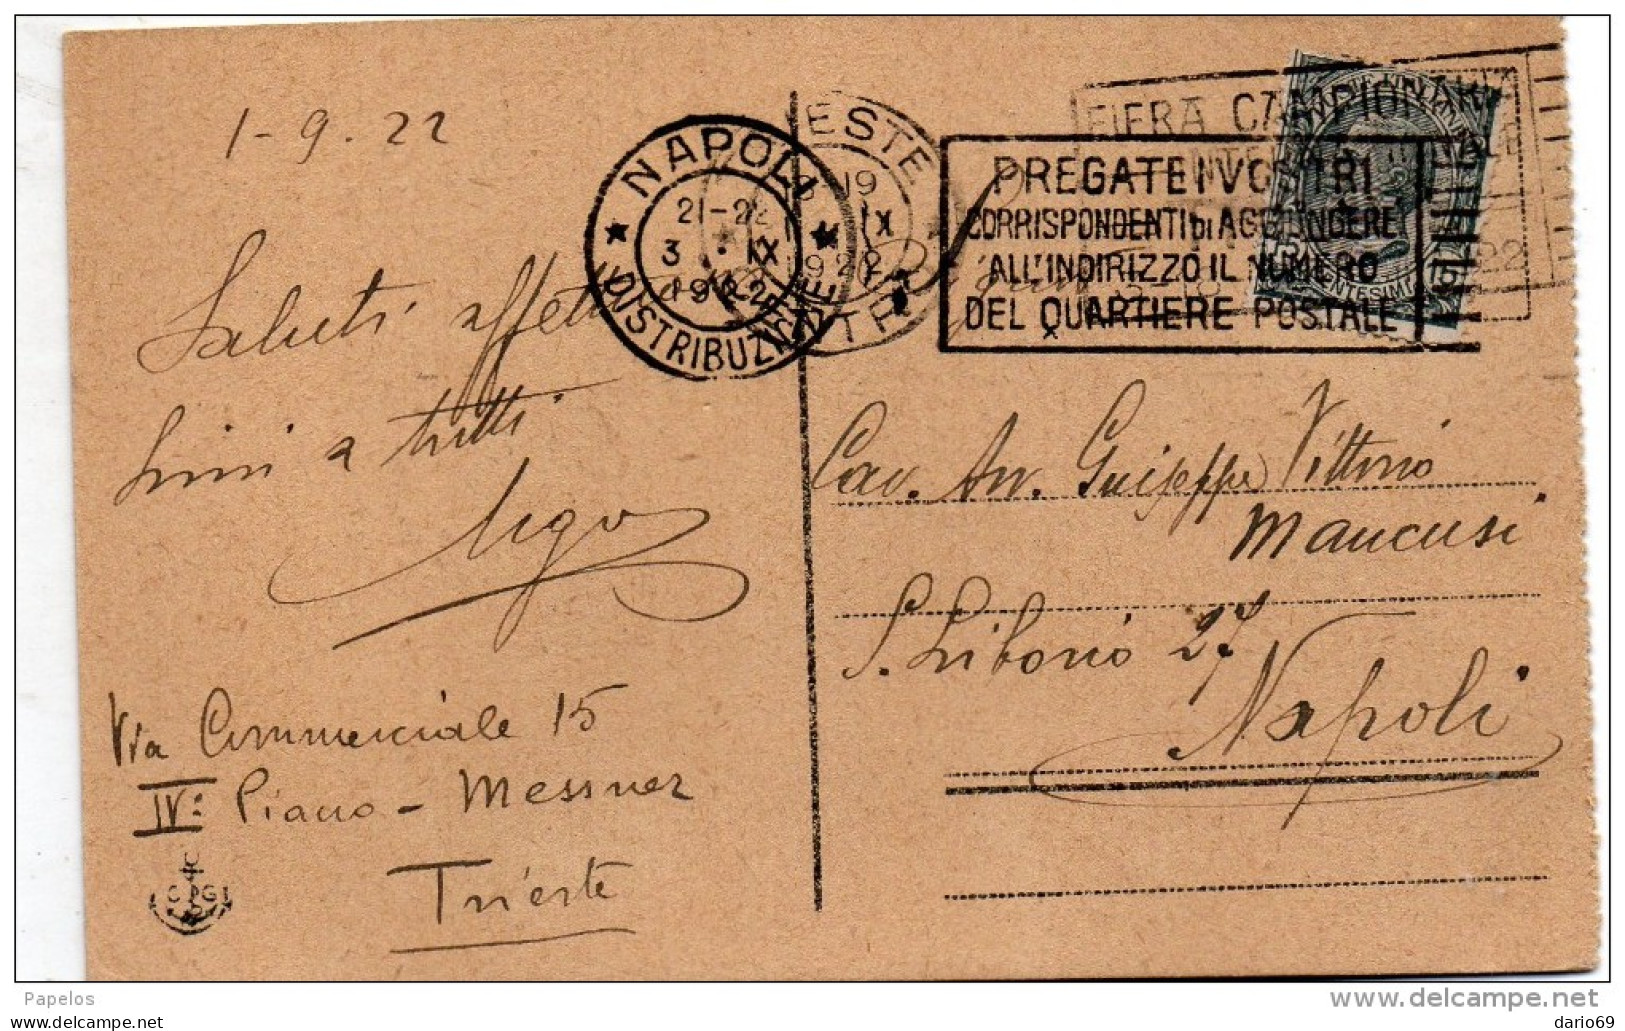 1-9.22
Saluti affettuo
sissimi a tutti
Via Commerciale 15
IV: Piano - Messner
Trieste
NAPOLI
21-22
3 · IX
1922
DISTRIBUZIONE
19
IX
FIERA CAMPION
PREGATE I VOSTRI
CORRISPONDENTI DI AGGIUNGERE
ALL'INDIRIZZO IL NUMERO
DEL QUARTIERE POSTALE
Cav. Av. Guiseppe Vittorio
Mancusi
S. Liborio 27
Napoli
Papelos
www.delcampe.net
dario69